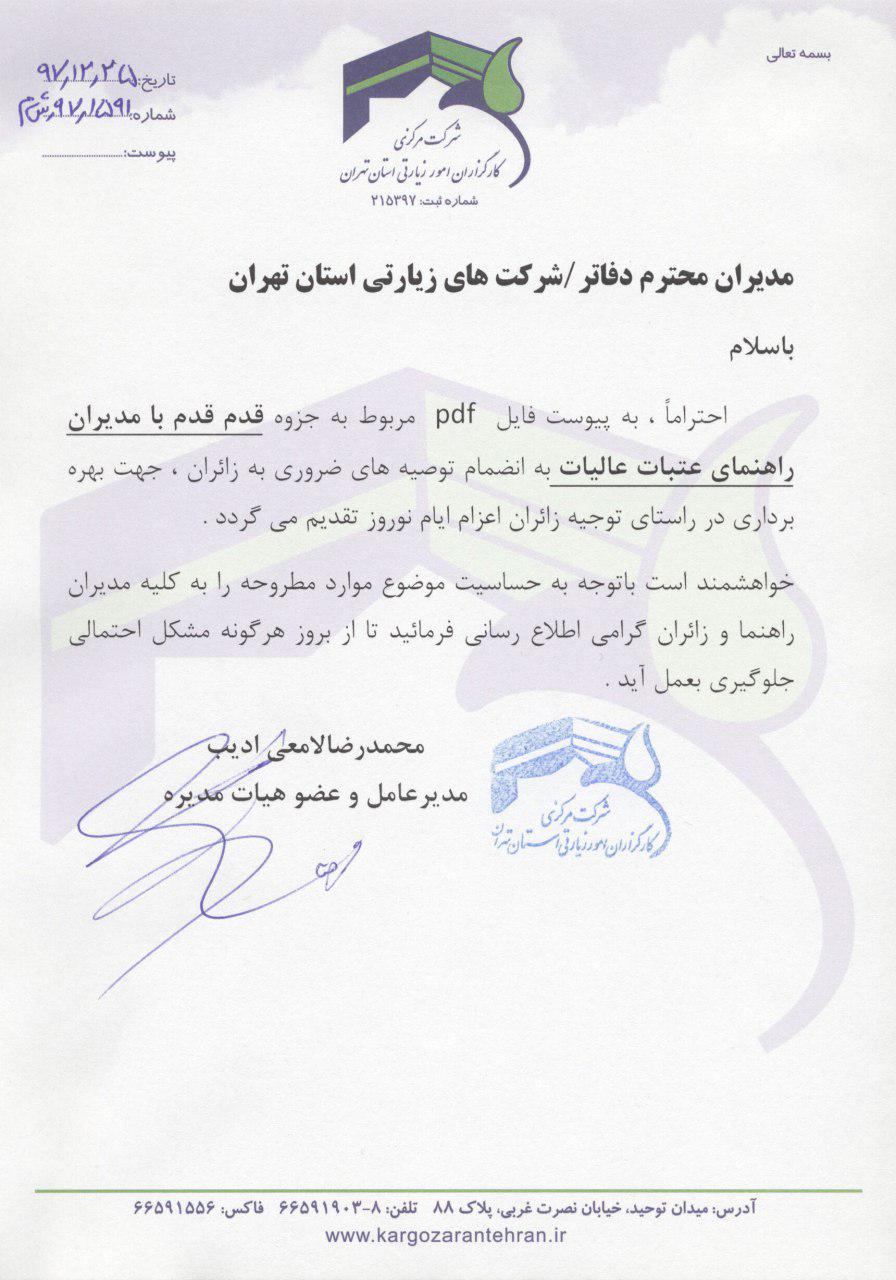 بسمه تعالی
تاریخ: ۹۷/۱۲/۲۵
شماره: ۹۷/۱۵۹۱/ش‌م
پیوست:
شرکت مرکزی
کارگزاران امور زیارتی استان تهران
شماره ثبت: ۲۱۵۳۹۷
مدیران محترم دفاتر/شرکت های زیارتی استان تهران
باسلام
احتراماً ، به پیوست فایل pdf مربوط به جزوه قدم قدم با مدیران
راهنمای عتبات عالیات به انضمام توصیه های ضروری به زائران ، جهت بهره
برداری در راستای توجیه زائران اعزام ایام نوروز تقدیم می گردد .
خواهشمند است باتوجه به حساسیت موضوع موارد مطروحه را به کلیه مدیران
راهنما و زائران گرامی اطلاع رسانی فرمائید تا از بروز هرگونه مشکل احتمالی
جلوگیری بعمل آید .
محمدرضالامعی ادیب
مدیرعامل و عضو هیات مدیره
شرکت مرکزی
کارگزاران امور زیارتی استان تهران
آدرس: میدان توحید، خیابان نصرت غربی، پلاک ۸۸ تلفن: ۸-۶۶۵۹۱۹۰۳ فاکس: ۶۶۵۹۱۵۵۶
www.kargozarantehran.ir